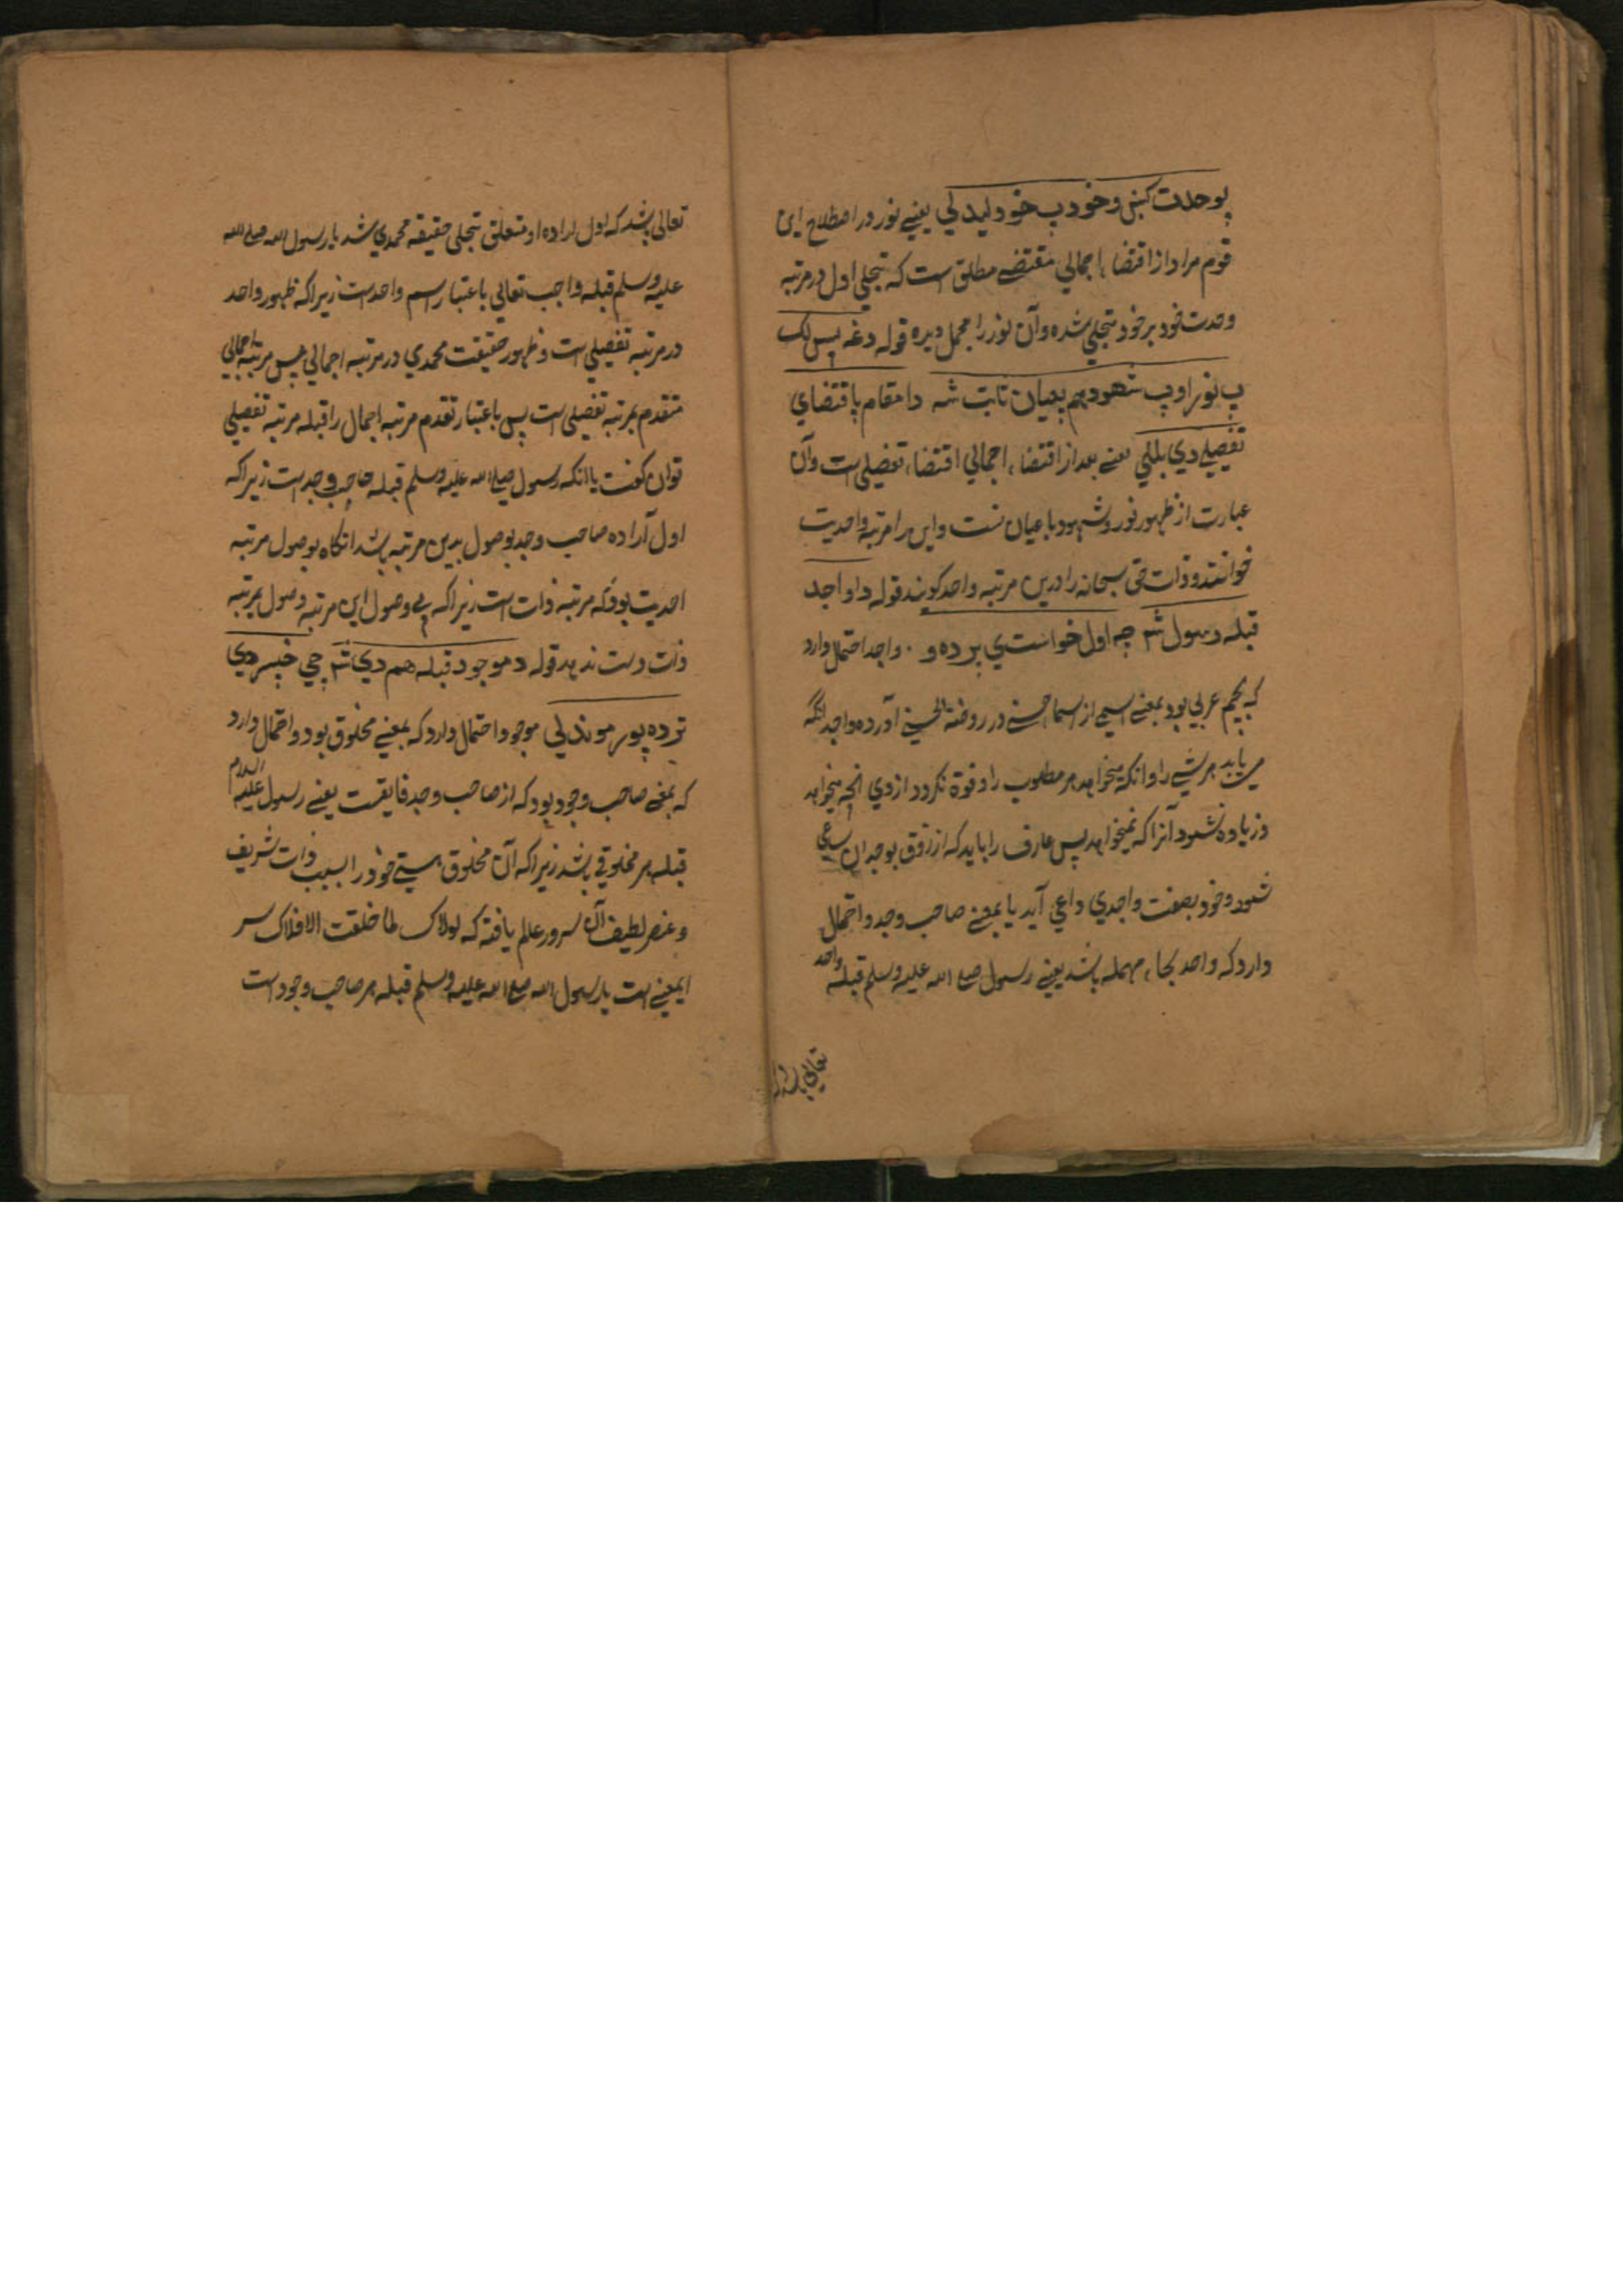 پوحدت کښی وخود پ خود لیدلی یعنے نور در اصطلاح این
قوم مراد از اقتضاء اجمالي مقتضے مطلق است که تجلی اول در مرتبه
وحدت خود بر خود متجلی شده و آن نور را مجمل دیده قوله دغه پس لک
پ نور او پ شهود هم بعیان ثابت شه دا مقام باقتضاي
تفصیلے دي بللی یعنے بعد از اقتضاء اجمالي اقتضاء تفصیلی است و آن
عبارت از ظهور نور و شهود با عیان است و این را مرتبه واحدیت
خوانند و ذات حق سبحانه را درین مرتبه واحد کویند قوله د واجد
قبله رسول شه چه اول خواست ي بر ده و . واجد احتمال دارد
که بجیم عربي بود بمعنے اسمی از اسما حسنے در روضة الحسنے آورده واجد انکه
می یابد هر شے را و انکه میخواهد هر مطلوب را و فوة نکردد از وي انچه میخواهد
و زیاده نشود آنرا که نمیخواهد پس عارف را باید که از ذوق بوجدان ساعی
شود و خود بصفت واجدي داعي آید یا بمعنے صاحب وجد و احتمال
دارد که واحد بحاء مهمله باشد یعنے رسول صلے الله علیه وسلم قبله واحد
تعالی باشد
تعالی باشد که اول اراده او متعلق تجلی حقیقه محمدي شد یا رسول الله صلے الله
علیه وسلم قبله واجب تعالی باعتبار اسم واحد است زیرا که ظهور واحد
در مرتبه تفصیلی است و ظهور حقیقت محمدي در مرتبه اجمالي پس مرتبه اجمالي
متقدم بمرتبه تفصیلی است پس باعتبار تقدم مرتبه اجمال را قبله مرتبه تفصیلی
توان کفت یا انکه رسول صلے الله علیه وسلم قبله صاحب وجد است زیرا که
اول آراده صاحب وجد بوصول بدین مرتبه باشد انکاه بوصول مرتبه
احدیت بود که مرتبه ذات است زیرا که بے وصول این مرتبه وصول بمرتبه
ذات دست ندهد قوله د موجود قبله هم دی شه چي خپسر دی
تر ده پور موندلی موجود احتمال دارد که بمعنے مخلوق بود و احتمال دارد
که بمعنے صاحب وجود بود که از صاحب وجد فایقست یعنے رسول علیه السلام
قبله هر مخلوقی باشد زیرا که آن مخلوق هستے خود را بسبب ذات شریف
و عنصر لطیف آن سرور عالم یافته که لولاک لما خلقت الافلاک سر
ایمعنے است یا رسول الله صلے الله علیه وسلم قبله هر صاحب وجود است